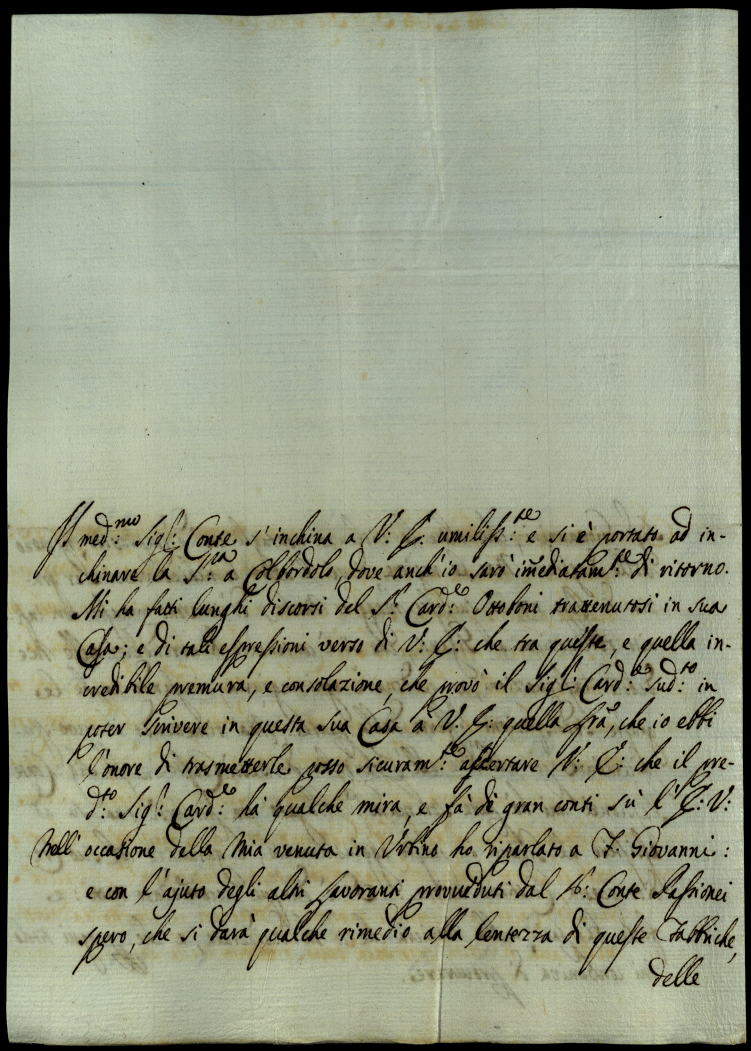 Il med:mo Sigl: Conte s'inchina a V: E: umiliss:te e si è portato ad in-
chinare la S:ra a Colbordolo, dove anch'io sarò immediatam:te di ritorno.
Mi ha fatti lunghi discorsi del S:r Card:e Ottoboni trattenutosi in sua
Casa; e di tali espressioni verso di V: E: che tra queste, e quella in-
credibile premura, e consolazione, che provò il Sigl: Card:e sud:to in
poter scrivere in questa sua Casa à V: E: quella Lrã, che io ebbi
l'onore di trasmetterle posso sicuram:te assertare V: E: che il pre-
d:to Sigl: Card:e hà qualche mira, e fà de gran conti sù l'E: V:
Nell'occasione della mia venuta in Urbino ho riparlato a F. Giovanni:
e con l'ajuto degli altri Lavoranti provveduti dal S: Conte Passionei
spero, che si darà qualche rimedio alla lentezza di queste Fabbriche,
delle